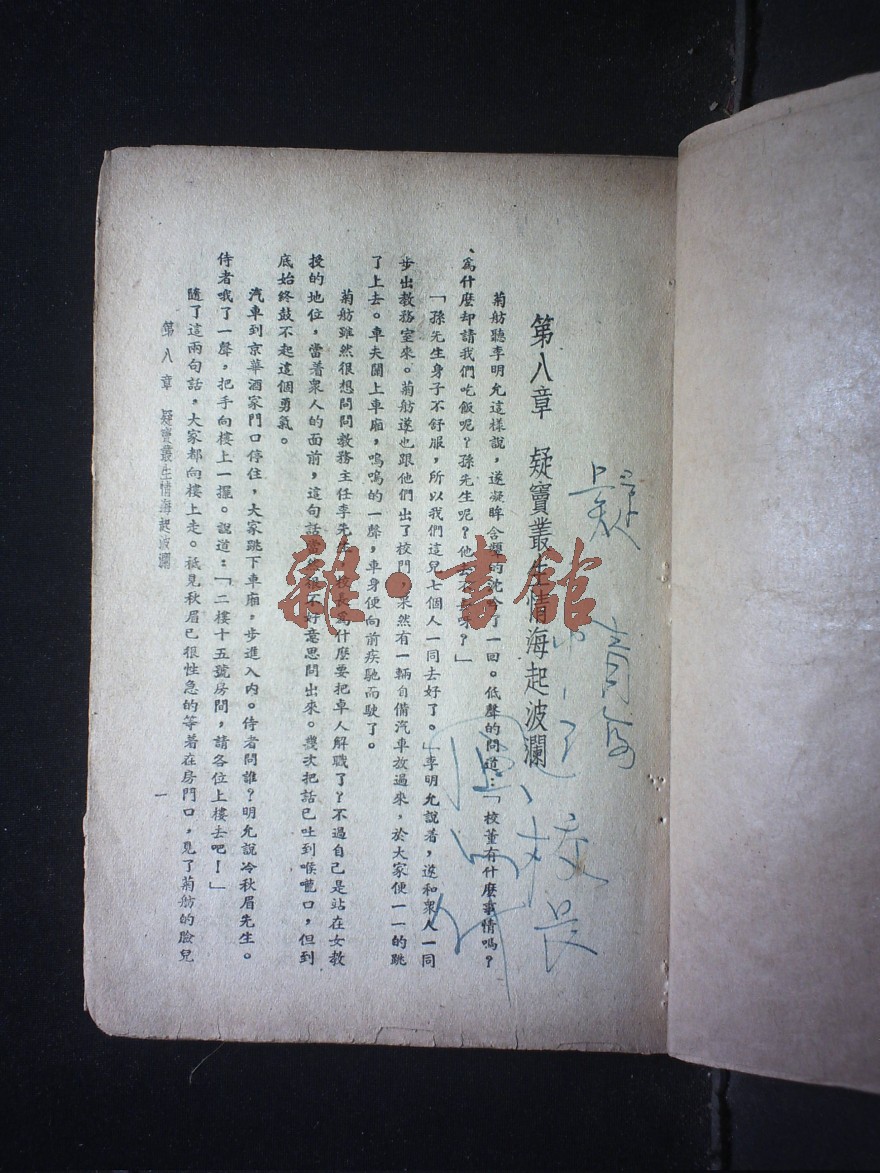 第八章　疑竇叢生情海起波瀾
菊舫聽李明允這樣說，遂凝眸含顰的沈吟了一回。低聲的問道：「校董有什麼事情嗎？
、爲什麼却請我們吃飯呢？孫先生呢？他去不去呀？」
「孫先生身子不舒服，所以我們這兒七個人一同去好了。」李明允說着，遂和衆人一同
步出教務室來。菊舫遂也跟他們出了校門，果然有一輛自備汽車放過來，於大家便一一的跳
了上去。車夫關上車廂，嗚嗚的一聲，車身便向前疾馳而駛了。
菊舫雖然很想問問教務主任李先生，校長爲什麼要把車人解職了？不過自己是站在女教
授的地位，當着衆人的面前，這句話當然很不好意思問出來。幾次把話已吐到喉嚨口，但到
底始終鼓不起這個勇氣。
汽車到京華酒家門口停住，大家跳下車廂，步進入內。侍者問誰？明允說冷秋眉先生。
侍者哦了一聲，把手向樓上一擺。說道：「二樓十五號房間，請各位上樓去吧！」
隨了這兩句話，大家都向樓上走。祗見秋眉已很性急的等着在房門口，見了菊舫的臉兒
第八章　疑竇叢生情海起波瀾
一
疑
校長
雜·書館